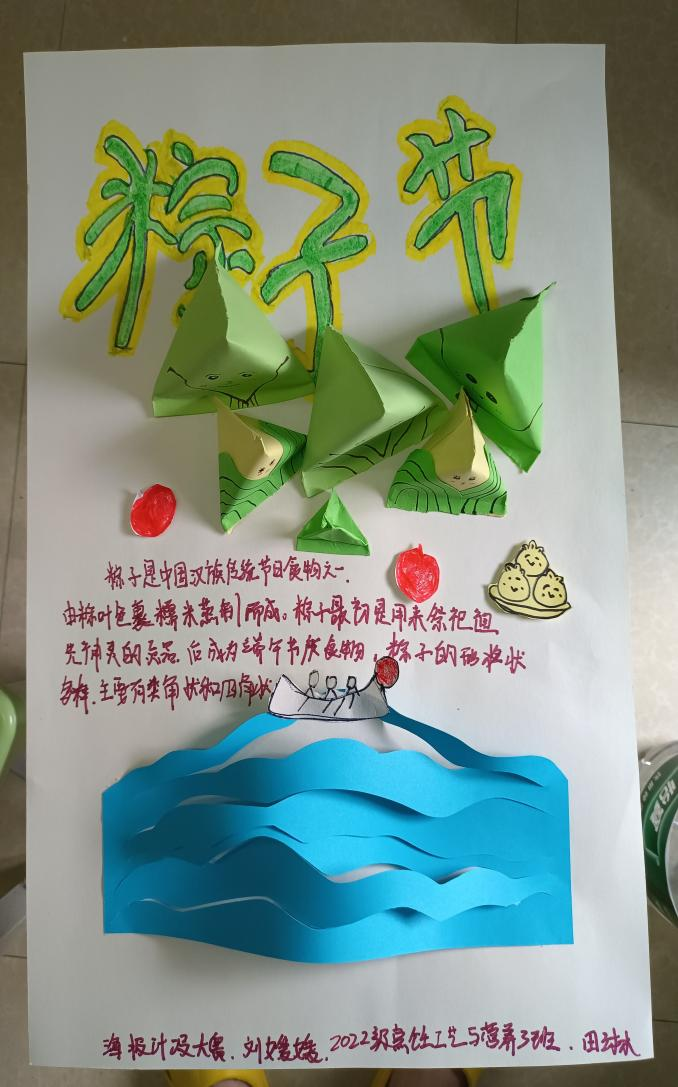 粽子节
粽子是中国汉族传统节日食物之一.
由粽叶包裹糯米蒸制而成。粽子最初是用来祭祀祖
先神灵的贡品.后成为端午节庆食物,粽子的形状
多样.主要有尖角状和四角状
海报计设大赛.刘媛媛.2022级烹饪工艺与营养3班.